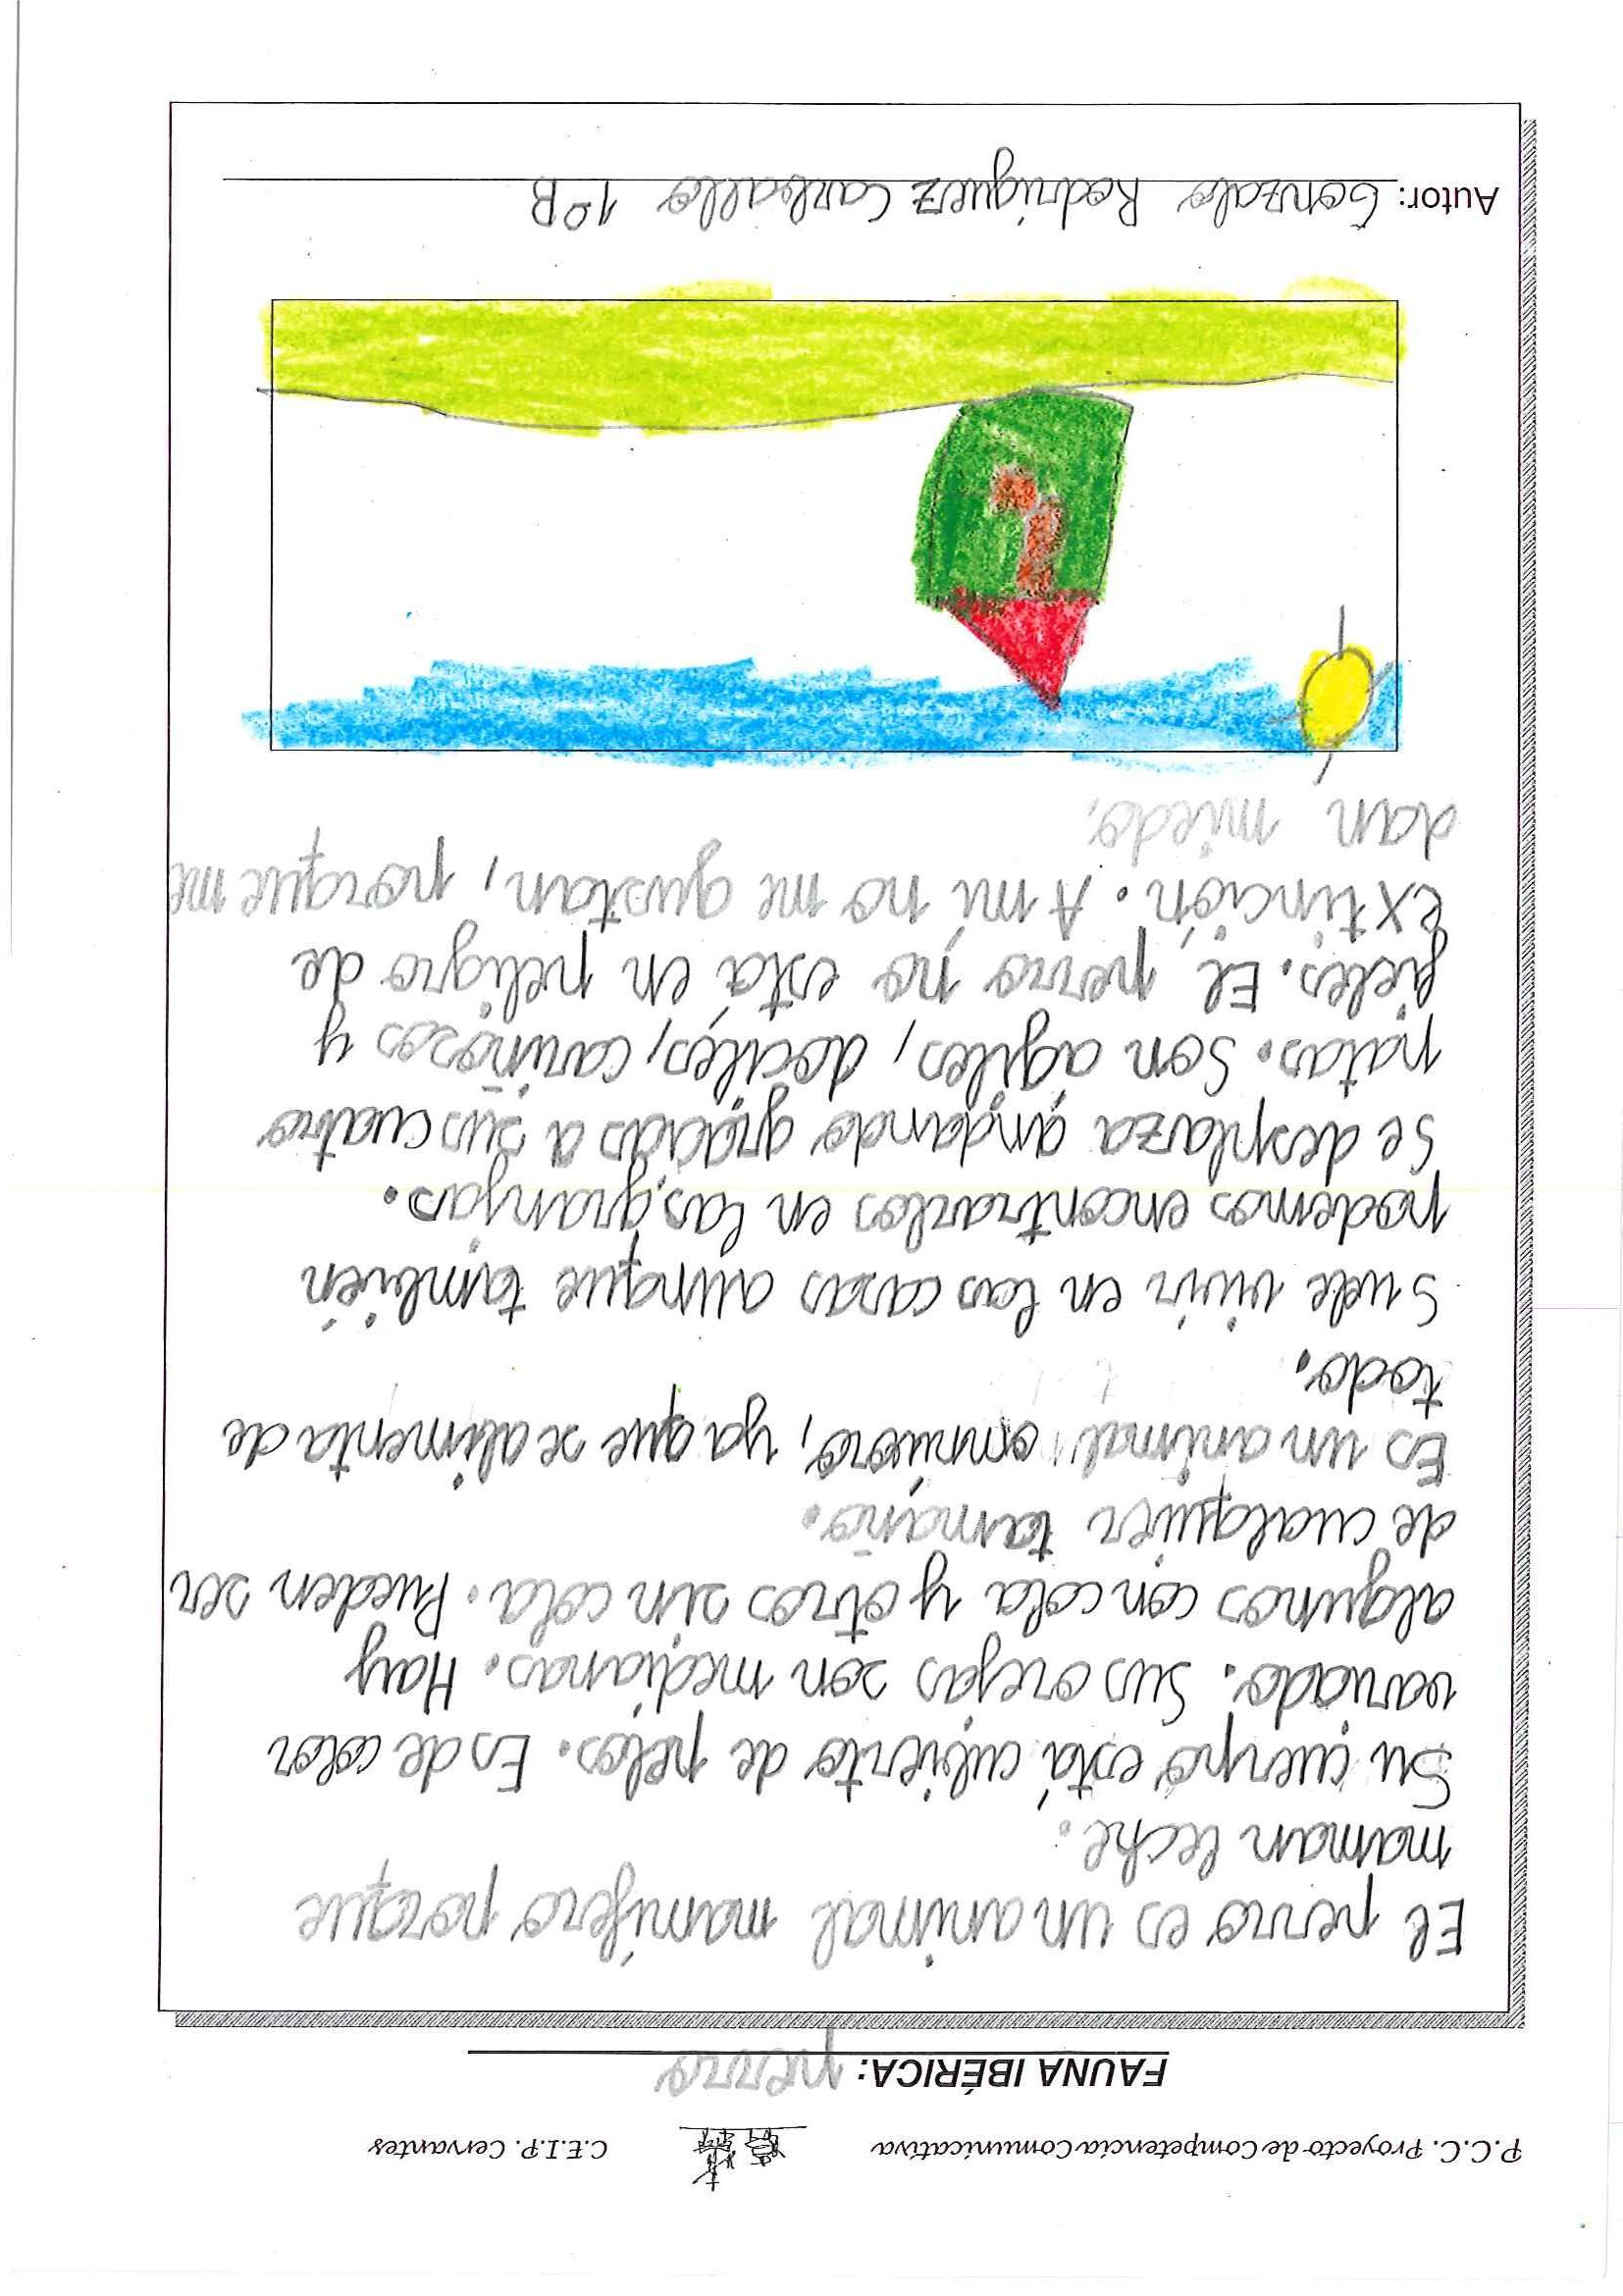 P.C.C. Proyecto de Competencia Comunicativa C.E.I.P. Cervantes
FAUNA IBÉRICA: perro
El perro es un animal mamífero porque
maman leche.
Su cuerpo está cubierto de pelos. Es de color
variado. Sus orejas son medianas. Hay
algunos con cola y otros sin cola. Pueden ser
de cualquier tamaño.
Es un animal omnívoro, ya que se alimenta de
todo.
Suele vivir en las casas aunque también
podemos encontrarlos en las granjas.
Se desplaza andando gracias a sus cuatro
patas. Son agiles, dociles, cariñosos y
fieles. El perro no está en peligro de
extinción. A mí no me gustan, porque me
dan miedo.
Autor: Gonzalo Rodriguez Carballo 1ºB